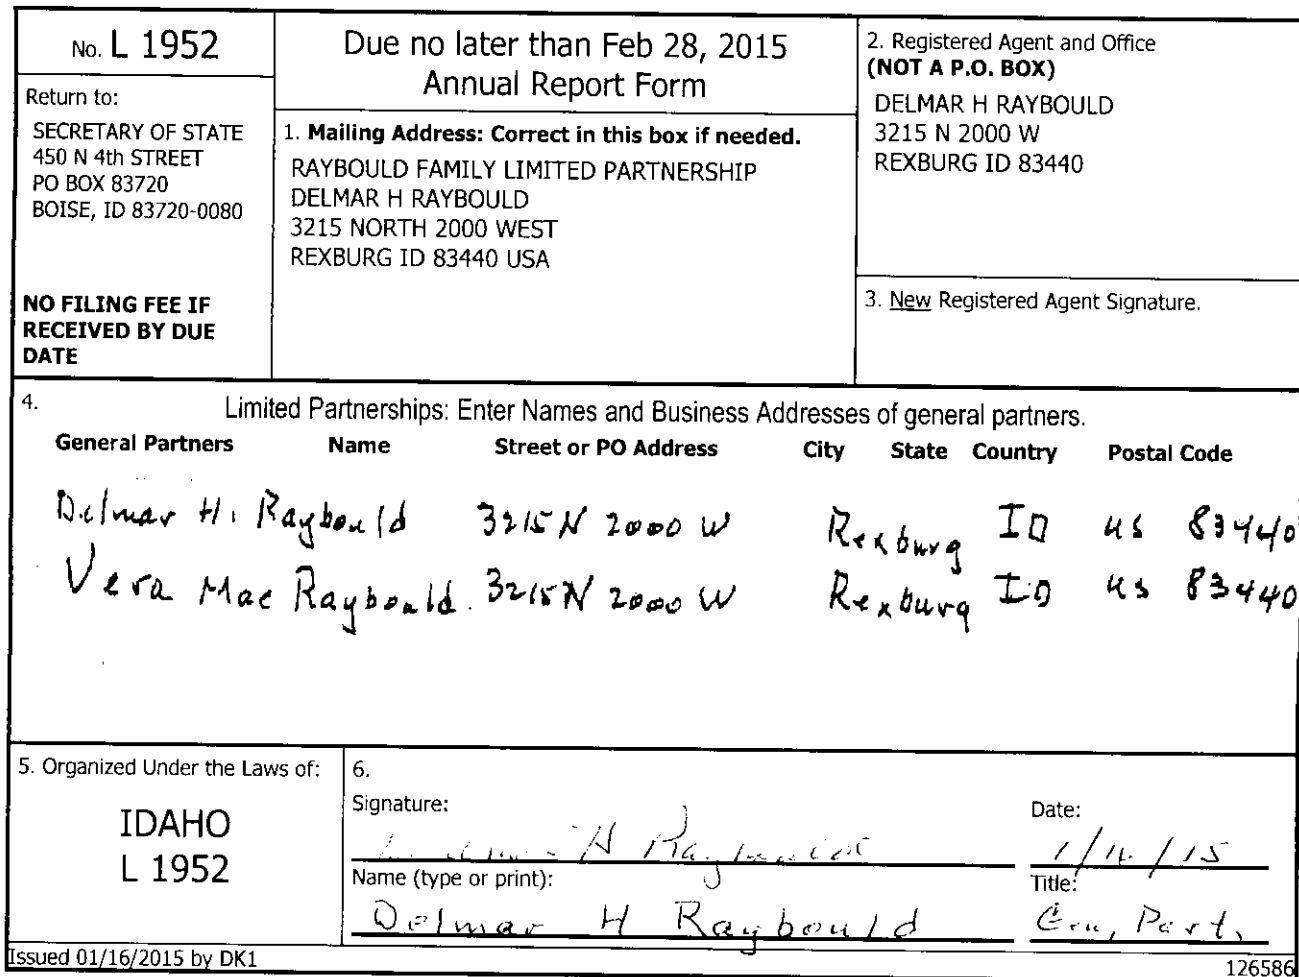 No. L 1952
Return to:
SECRETARY OF STATE
450 N 4th STREET
PO BOX 83720
BOISE, ID 83720-0080
NO FILING FEE IF
RECEIVED BY DUE
DATE
Due no later than Feb 28, 2015
Annual Report Form
1. Mailing Address: Correct in this box if needed.
RAYBOULD FAMILY LIMITED PARTNERSHIP
DELMAR H RAYBOULD
3215 NORTH 2000 WEST
REXBURG ID 83440 USA
2. Registered Agent and Office
(NOT A P.O. BOX)
DELMAR H RAYBOULD
3215 N 2000 W
REXBURG ID 83440
3. New Registered Agent Signature.
4. Limited Partnerships: Enter Names and Business Addresses of general partners.
General Partners Name Street or PO Address City State Country Postal Code
Delmar H. Raybould 3215 N 2000 W Rexburg ID US 83440
Vera Mae Raybould. 3215 N 2000 W Rexburg ID US 83440
5. Organized Under the Laws of:
IDAHO
L 1952
6.
Signature:
H Raybould
Date:
Name (type or print):
Delmar H Raybould
Title:
Gen, Part.
Issued 01/16/2015 by DK1
126586